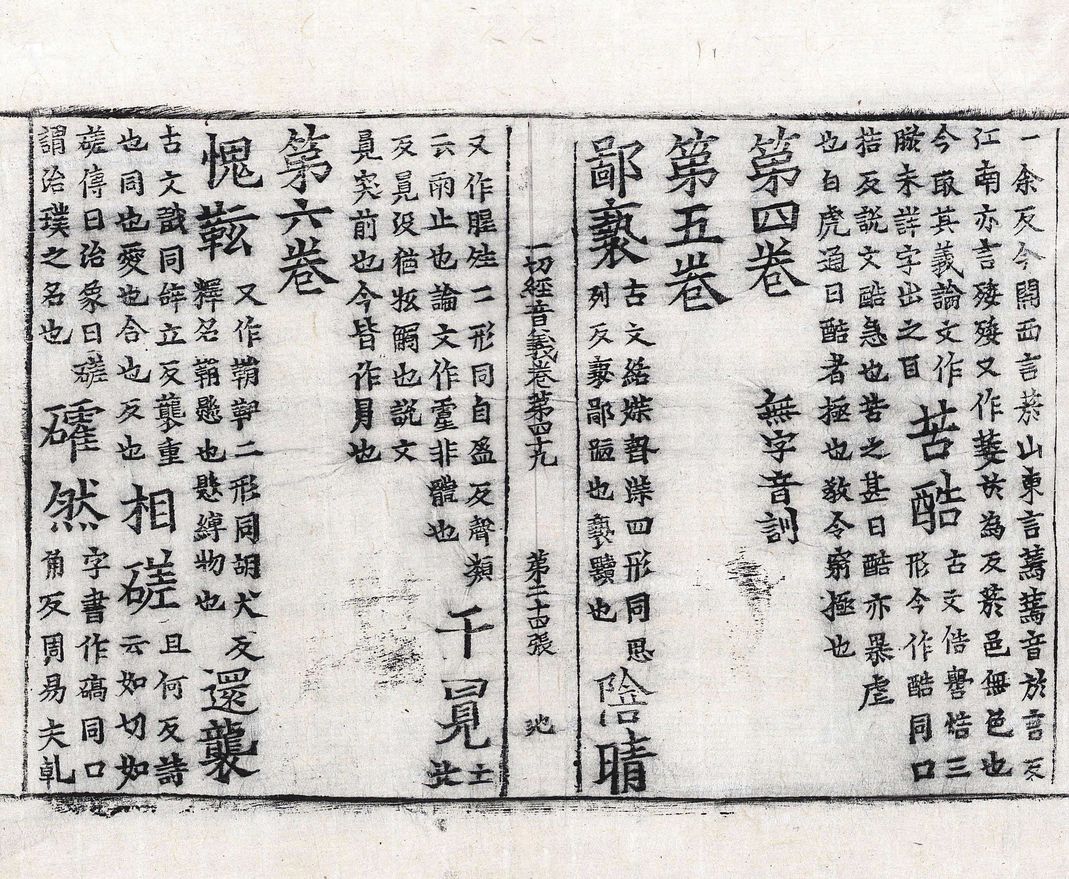 一余反今關西言菸山東言蔫蔫音於言反
江南亦言殗殗又作萎於為反菸邑無色也
今取其義論文作
未詳字出之目
苦酷
古文俈嚳焅三
形今作酷同口
梏反說文酷急也苦之甚曰酷亦暴虐
也白虎通曰酷者極也教令窮極也
第四卷 無字音訓
第五卷
鄙褻
古文絬媟暬渫四形同思
列反褻鄙陋也褻黷也
陰晴
一切經音義卷第四十九 第二十四張 池
又作腥夝二形同自盈反聲類
云雨止也論文作霪非體也
千㒻
土
此
反㒻沒猶抵觸也說文
㒻突前也今皆作冒也
第六卷
愧䩙
又作鞙二形同胡犬反
釋名鞙懸也懸縛物也
還襲
古文戠同辝立反襲重
也同也愛也合也反也
相磋
且何反詩
云如切如
磋傳曰治象曰磋
謂治璞之名也
確然
字書作碻同口
角反周易夫乹